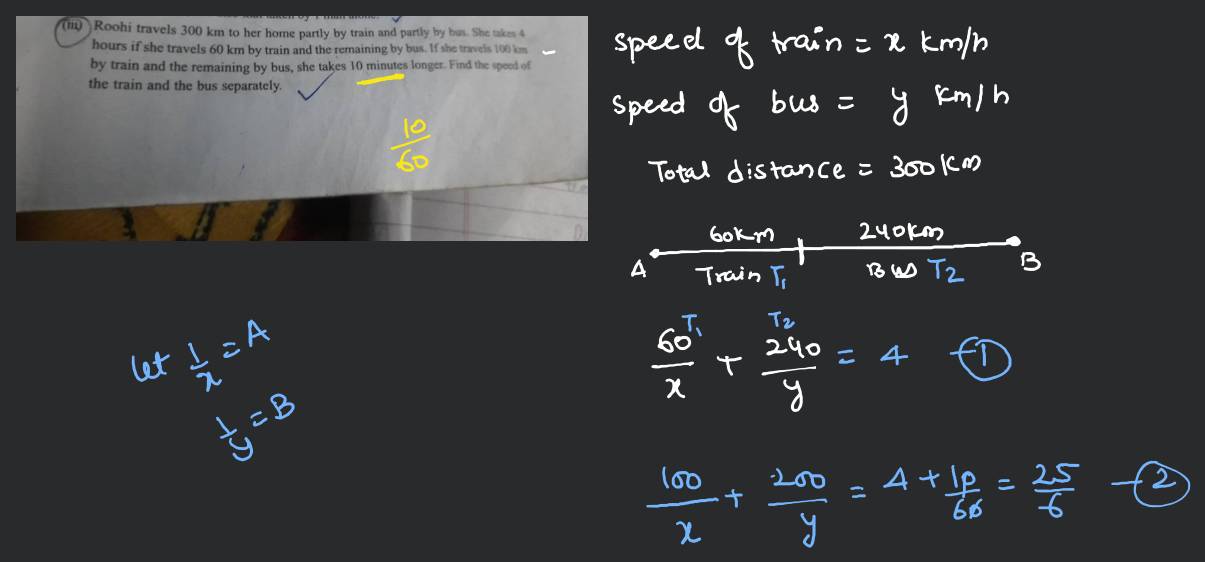 (iii) Roohi travels 300 km to her home partly by train and partly by bus. She takes 4
hours if she travels 60 km by train and the remaining by bus. If she travels 100 km
by train and the remaining by bus, she takes 10 minutes longer. Find the speed of
the train and the bus separately.
10/60
let 1/x = A
1/y = B
speed of train = x km/h
speed of bus = y km/h
Total distance = 300 km
60km 240km
A Train T1 Bus T2 B
T1 T2
60/x + 240/y = 4 - 1
100/x + 200/y = 4 + 10/60 = 25/6 - 2